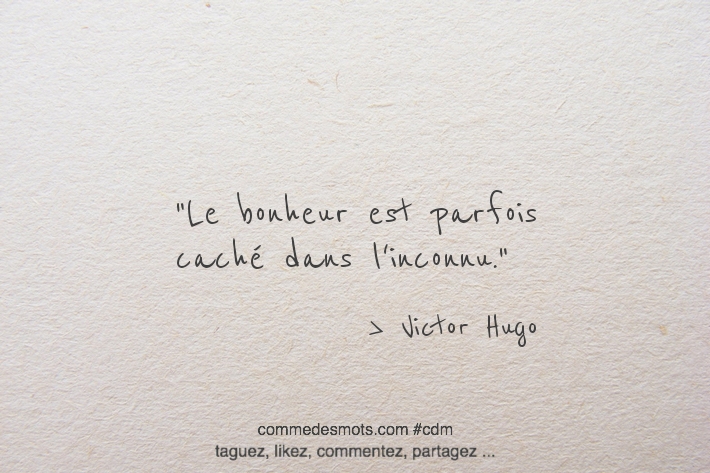 "Le bonheur est parfois
caché dans l'inconnu."
> Victor Hugo
commedesmots.com #cdm
taguez, likez, commentez, partagez ...